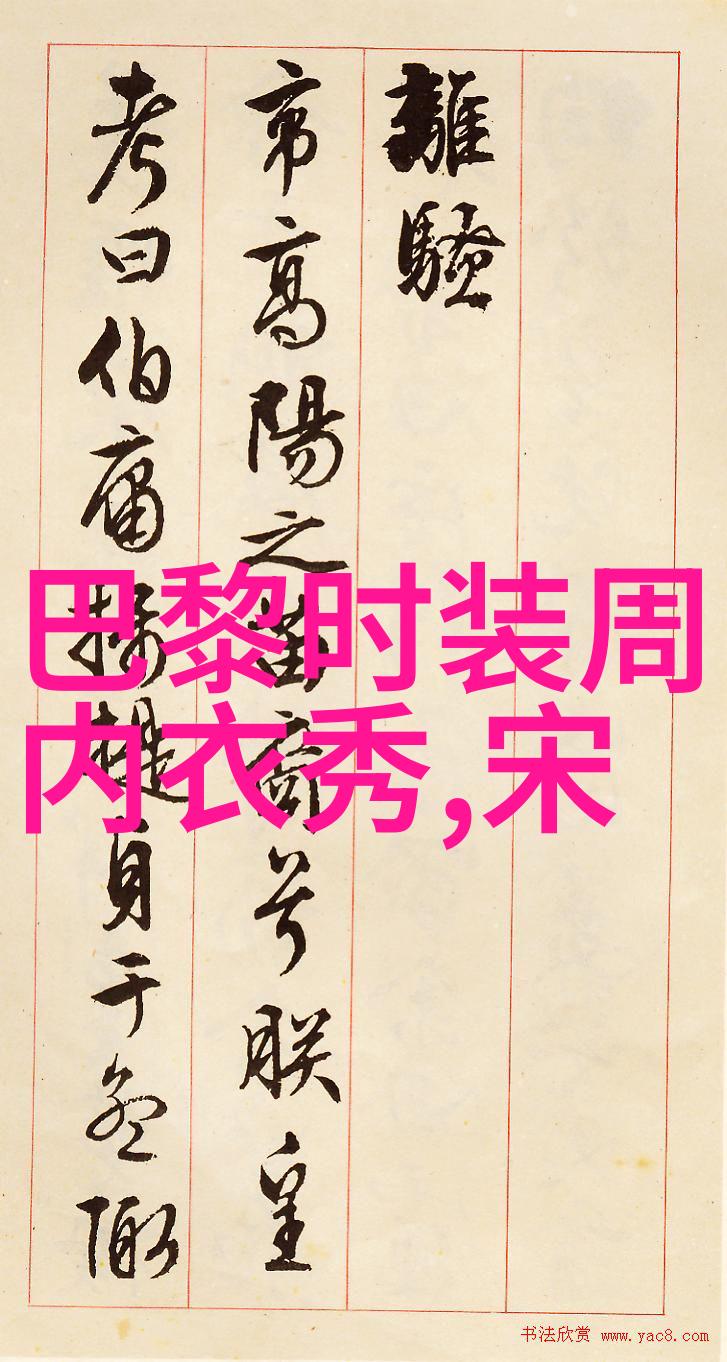 離騷
帝高陽之苗裔兮朕皇
考曰伯庸攝提貞于孟陬
巴黎时装周
内衣秀,宋
书法欣赏 www.yac8.com